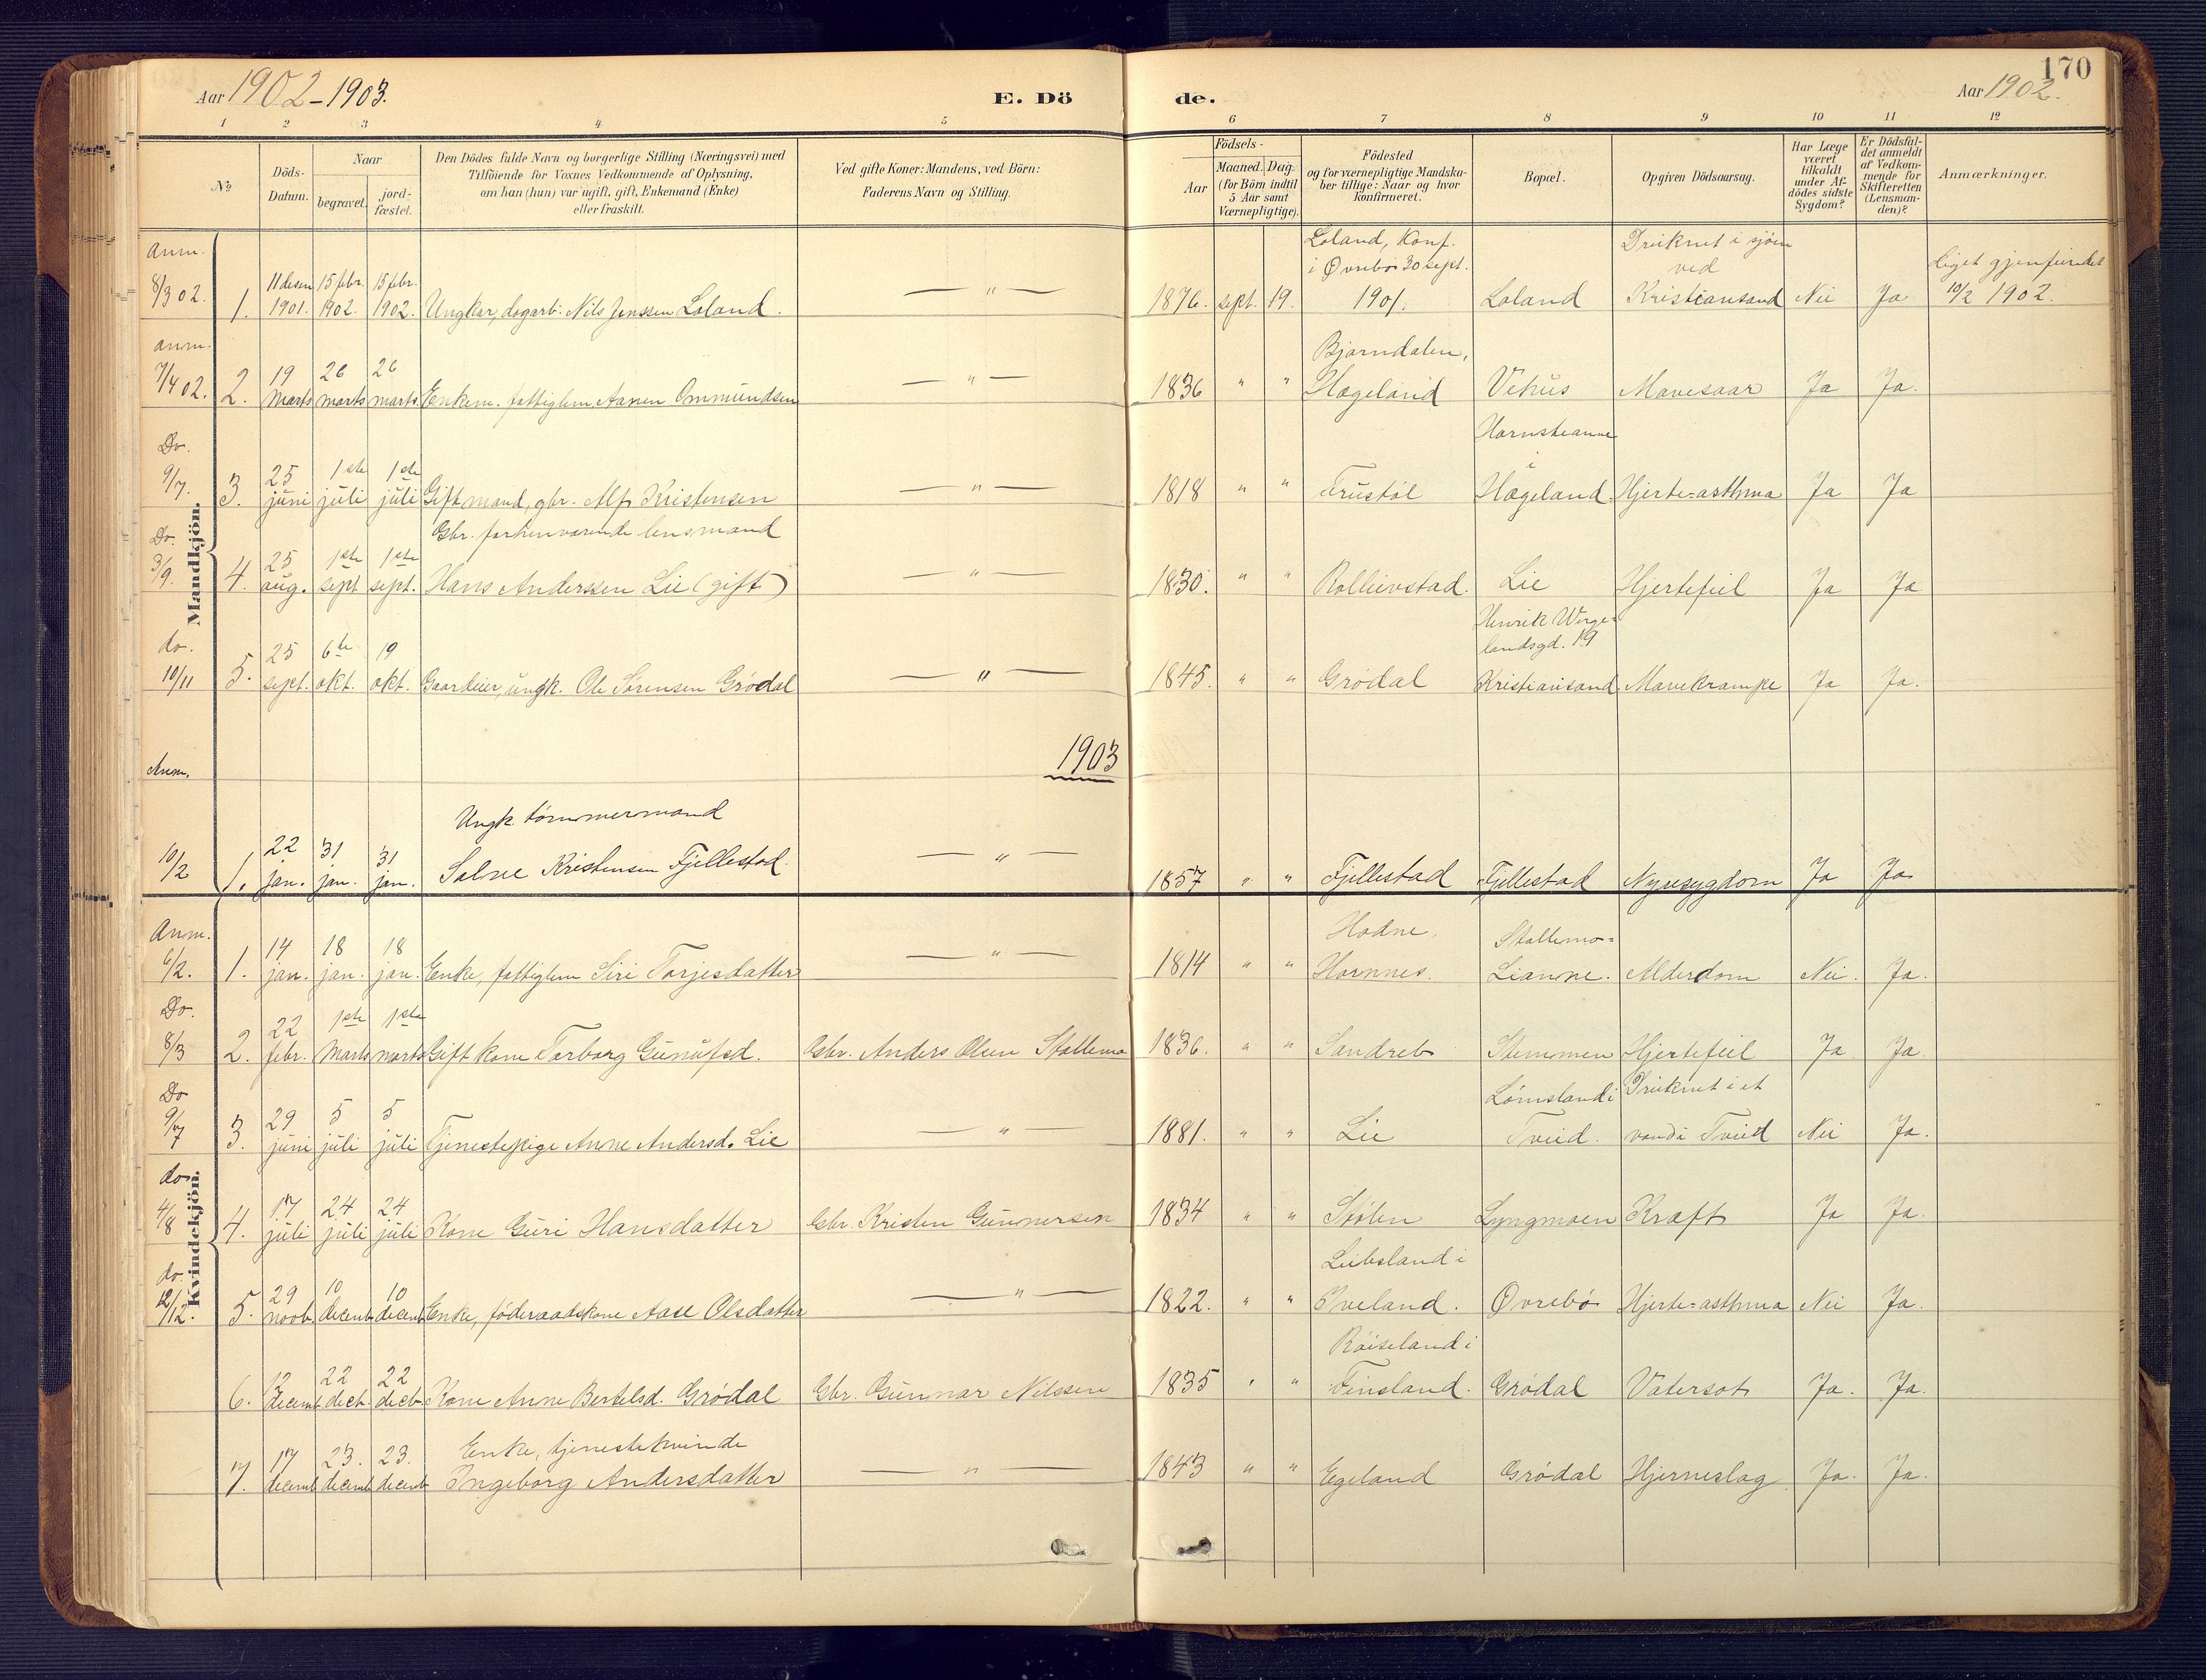 Aar 1902-1903.
E. Dö
de.
170
Aar 1902.
1 2 3 4 5 6 7 8 9 10 11 12
No
Döds-Datum.
Naar
begravet.
jord-fæstet.
Den Dödes fulde Navn og borgerlige Stilling (Næringsvei) med
Tilföiende for Voxnes Vedkommende af Oplysning,
om han (hun) var ugift, gift, Enkemand (Enke)
eller fraskilt.
Ved gifte Koner: Mandens, ved Börn:
Faderens Navn og Stilling.
Födsels-
Aar
Maaned. Dag.
(for Börn indtil
5 Aar samt
Værnepligtige).
Födested
og for værnepligtige Mandska-
ber tillige: Naar og hvor
konfirmeret.
Bopæl.
Opgiven Dödsaarsag.
Har Læge
været
tilkaldt
under Af-
dödes sidste
Sygdom?
Er Dödsfal-
det anmeldt
af Vedkom-
mende for
Skifteretten
(Lensman-
den)?
Anmærkninger.
Mandkjön.
Anm. 8/3 02. 1. 11 desem 1901. 15 febr. 1902. 15 febr. 1902. Ungkar, dagarb: Nils Jenssen Loland. — " — 1876. sept. 19. Loland, Konf. i Øvrebø 30 sept. 1901. Loland Druknet i sjøen ved Kristiansand Nei Ja Liget gjenfundet 10/2 1902.
anm. 7/4 02. 2. 19 marts 26 marts 26 marts. Enkem. fattiglem Aanen Ommundsen — " — 1836 " " Bjørndalen, Hægeland Vehus Mavesaar Ja Ja.
Do. 9/7. 3. 25 juni 1ste juli 1ste juli Gift mand, gbr. Alf Kristensen — " — 1818 " " Frustøl Hornsteanne i Hægeland. Hjerte=asthma Ja Ja
Do. 3/9. 4. 25 aug. 1ste sept 1ste sept. Gbr. forhenværende lensmand
Hans Anderssen Lie (gift) — " — 1830. " " Rolleivstad. Lie Hjertefeil Ja Ja
do. 10/11 5. 25 sept. 6te okt. 19 okt. Gaardeier, ungk. Ole Sørensen Grødal — " — 1845. " " Grødal Henrik Werge-landsgd. 19 Kristiansand Mavekrampe Ja Ja.
1903
Anm.
10/2 1. 22 jan. 31 jan. 31 jan. Ungk. tømmermand
Salve Kristensen Fjellestad. — " — 1857 " " Fjellestad Fjellestad Nyresygdom Ja Ja
Kvindekjön.
Anm. 6/2. 1. 14 jan. 18 jan. 18 jan. Enke, fattiglem Siri Torjesdatter — " — 1814 " " Hodne. Hornnes. Stallemo=Lianne. Alderdom Nei. Ja.
Do. 8/3 2. 22 febr. 1ste marts 1ste marts Gift kone Torborg Gunufsd. Gbr. Anders Olsen Stallemo 1836. " " Sandreb Stemmen Hjertefeil Ja Ja.
Do 9/7 3. 29 juni 5 juli 5 juli Tjenestepige Anne Andersd. Lie — " — 1881. " " Lie Lømsland i Tveid. Druknet i et vand i Tveid Nei Ja.
do. 4/8 4. 17 juli 24 juli 24 juli Kone Guri Hansdatter Gbr. Kristen Gunnersen 1834 " " Stølen Lyngmoen Kræft Ja Ja.
do. 12/12. 5. 29 novb. 10 decemb. 10 decemb. Enke, føderaadskone Aase Olsdatter — " — 1822. " " Liebsland i Iveland. Øvrebø Hjerte=asthma Nei Ja.
6. 12 decemb 22 decb. 22 decb. Kone Anne Bertelsd. Grødal Gbr. Gunnar Nilssen 1835 " " Røiseland i Finsland. Grødal Vatersot Ja. Ja.
7. 17 decemb 23. decemb 23. decemb Enke, tjenestekvinde
Ingeborg Andersdatter — " — 1843 " " Egeland Grødal Hjerneslag Ja. Ja.